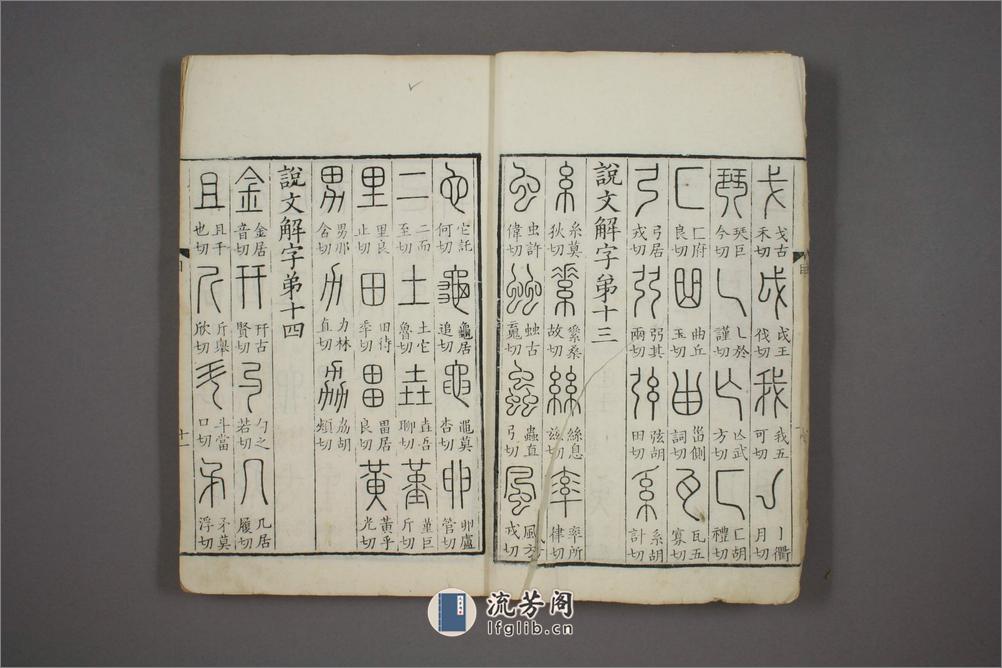 戈 戈古禾切 戉 戉王伐切 我 我五可切 亅 亅衢月切
珡 珡巨今切 乚 乚於謹切 亾 亾武方切 匸 匸胡禮切
匚 匚府良切 曲 曲丘玉切 甾 甾側詞切 瓦 瓦五寡切
弓 弓居戎切 弜 弜其兩切 弦 弦胡田切 系 系胡計切
說文解字弟十三
糸 糸莫狄切 素 素桑故切 絲 絲息兹切 率 率所律切
虫 虫許偉切 䖵 䖵古䰟切 蟲 蟲直弓切 風 風方戎切
它 它託何切 龜 龜居追切 黽 黽莫杏切 卵 卵盧管切
二 二而至切 土 土它魯切 垚 垚吾聊切 堇 堇巨斤切
里 里良止切 田 田待秊切 畕 畕居良切 黃 黃乎光切
男 男那含切 力 力林直切 劦 劦胡頰切
說文解字弟十四
金 金居音切 幵 幵古賢切 勺 勺之若切 几 几居履切
且 且千也切 斤 斤舉欣切 斗 斗當口切 矛 矛莫浮切
十一
流芳阁
lfglib.cn